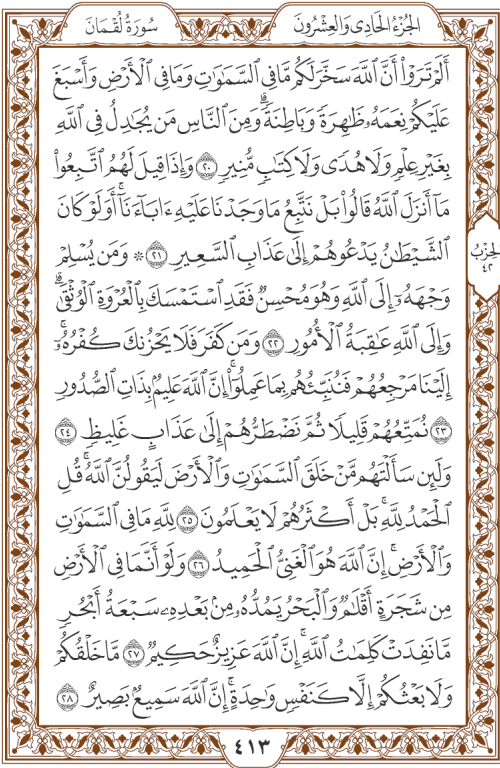 الجُزْءُ الحَادِي وَالعِشْرُونَ
سُورَةُ لُقْمَان
أَلَمْ تَرَوْا۟ أَنَّ ٱللَّهَ سَخَّرَ لَكُم مَّا فِى ٱلسَّمَٰوَٰتِ وَمَا فِى ٱلْأَرْضِ وَأَسْبَغَ
عَلَيْكُمْ نِعَمَهُۥ ظَٰهِرَةً وَبَاطِنَةً ۗ وَمِنَ ٱلنَّاسِ مَن يُجَٰدِلُ فِى ٱللَّهِ
بِغَيْرِ عِلْمٍ وَلَا هُدًى وَلَا كِتَٰبٍ مُّنِيرٍ ٢٠ وَإِذَا قِيلَ لَهُمُ ٱتَّبِعُوا۟
مَآ أَنزَلَ ٱللَّهُ قَالُوا۟ بَلْ نَتَّبِعُ مَا وَجَدْنَا عَلَيْهِ ءَابَآءَنَآ ۚ أَوَلَوْ كَانَ
ٱلشَّيْطَٰنُ يَدْعُوهُمْ إِلَىٰ عَذَابِ ٱلسَّعِيرِ ٢١ ۞ وَمَن يُسْلِمْ
وَجْهَهُۥٓ إِلَى ٱللَّهِ وَهُوَ مُحْسِنٌ فَقَدِ ٱسْتَمْسَكَ بِٱلْعُرْوَةِ ٱلْوُثْقَىٰ ۗ
وَإِلَى ٱللَّهِ عَٰقِبَةُ ٱلْأُمُورِ ٢٢ وَمَن كَفَرَ فَلَا يَحْزُنكَ كُفْرُهُۥٓ ۚ
إِلَيْنَا مَرْجِعُهُمْ فَنُنَبِّئُهُم بِمَا عَمِلُوٓا۟ ۚ إِنَّ ٱللَّهَ عَلِيمٌۢ بِذَاتِ ٱلصُّدُورِ
٢٣ نُمَتِّعُهُمْ قَلِيلًا ثُمَّ نَضْطَرُّهُمْ إِلَىٰ عَذَابٍ غَلِيظٍ ٢٤
وَلَئِن سَأَلْتَهُم مَّنْ خَلَقَ ٱلسَّمَٰوَٰتِ وَٱلْأَرْضَ لَيَقُولُنَّ ٱللَّهُ ۚ قُلِ
ٱلْحَمْدُ لِلَّهِ ۚ بَلْ أَكْثَرُهُمْ لَا يَعْلَمُونَ ٢٥ لِلَّهِ مَا فِى ٱلسَّمَٰوَٰتِ
وَٱلْأَرْضِ ۚ إِنَّ ٱللَّهَ هُوَ ٱلْغَنِىُّ ٱلْحَمِيدُ ٢٦ وَلَوْ أَنَّمَا فِى ٱلْأَرْضِ
مِن شَجَرَةٍ أَقْلَٰمٌ وَٱلْبَحْرُ يَمُدُّهُۥ مِنۢ بَعْدِهِۦ سَبْعَةُ أَبْحُرٍ
مَّا نَفِدَتْ كَلِمَٰتُ ٱللَّهِ ۗ إِنَّ ٱللَّهَ عَزِيزٌ حَكِيمٌ ٢٧ مَّا خَلْقُكُمْ
وَلَا بَعْثُكُمْ إِلَّا كَنَفْسٍ وَٰحِدَةٍ ۗ إِنَّ ٱللَّهَ سَمِيعٌۢ بَصِيرٌ ٢٨
الحِزْبُ
٤٢
٤١٣